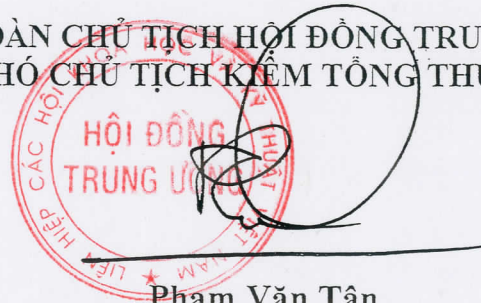 ĐOÀN CHỦ TỊCH HỘI ĐỒNG TRU
HÓ CHỦ TỊCH KIÊM TỔNG THU
LIÊN HIỆP CÁC HỘI KHOA HỌC VÀ KỸ THUẬT VIỆT NAM
HỘI ĐỒNG
TRUNG ƯƠNG
Phạm Văn Tân